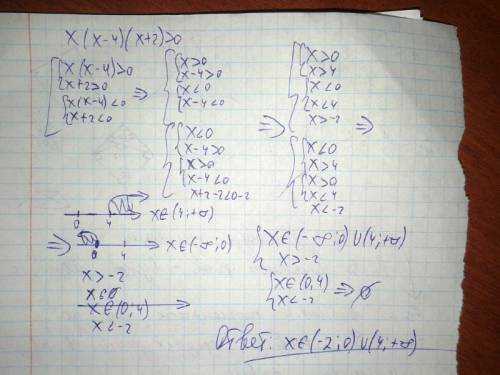 x(x-4)(x+2)>0
x(x-4)>0
x+2>0
x(x-4)<0
x+2<0
=>
x>0
x-4>0
x<0
x-4<0
x<0
x-4>0
x>0
x-4<0
x+2-2<0-2
=>
x>0
x>4
x<0
x<4
x>-2
x<0
x>4
x>0
x<4
x<-2
=>
0 4 x∈(4;+∞)
=> 0 4 x∈(-∞;0)
x>-2
x∈∅
x∈(0,4)
x<-2
x∈(-∞;0)∪(4;+∞)
x>-2
x∈(0,4)
x<-2
=> ∅
Ответ: x∈(-2;0)∪(4;+∞)